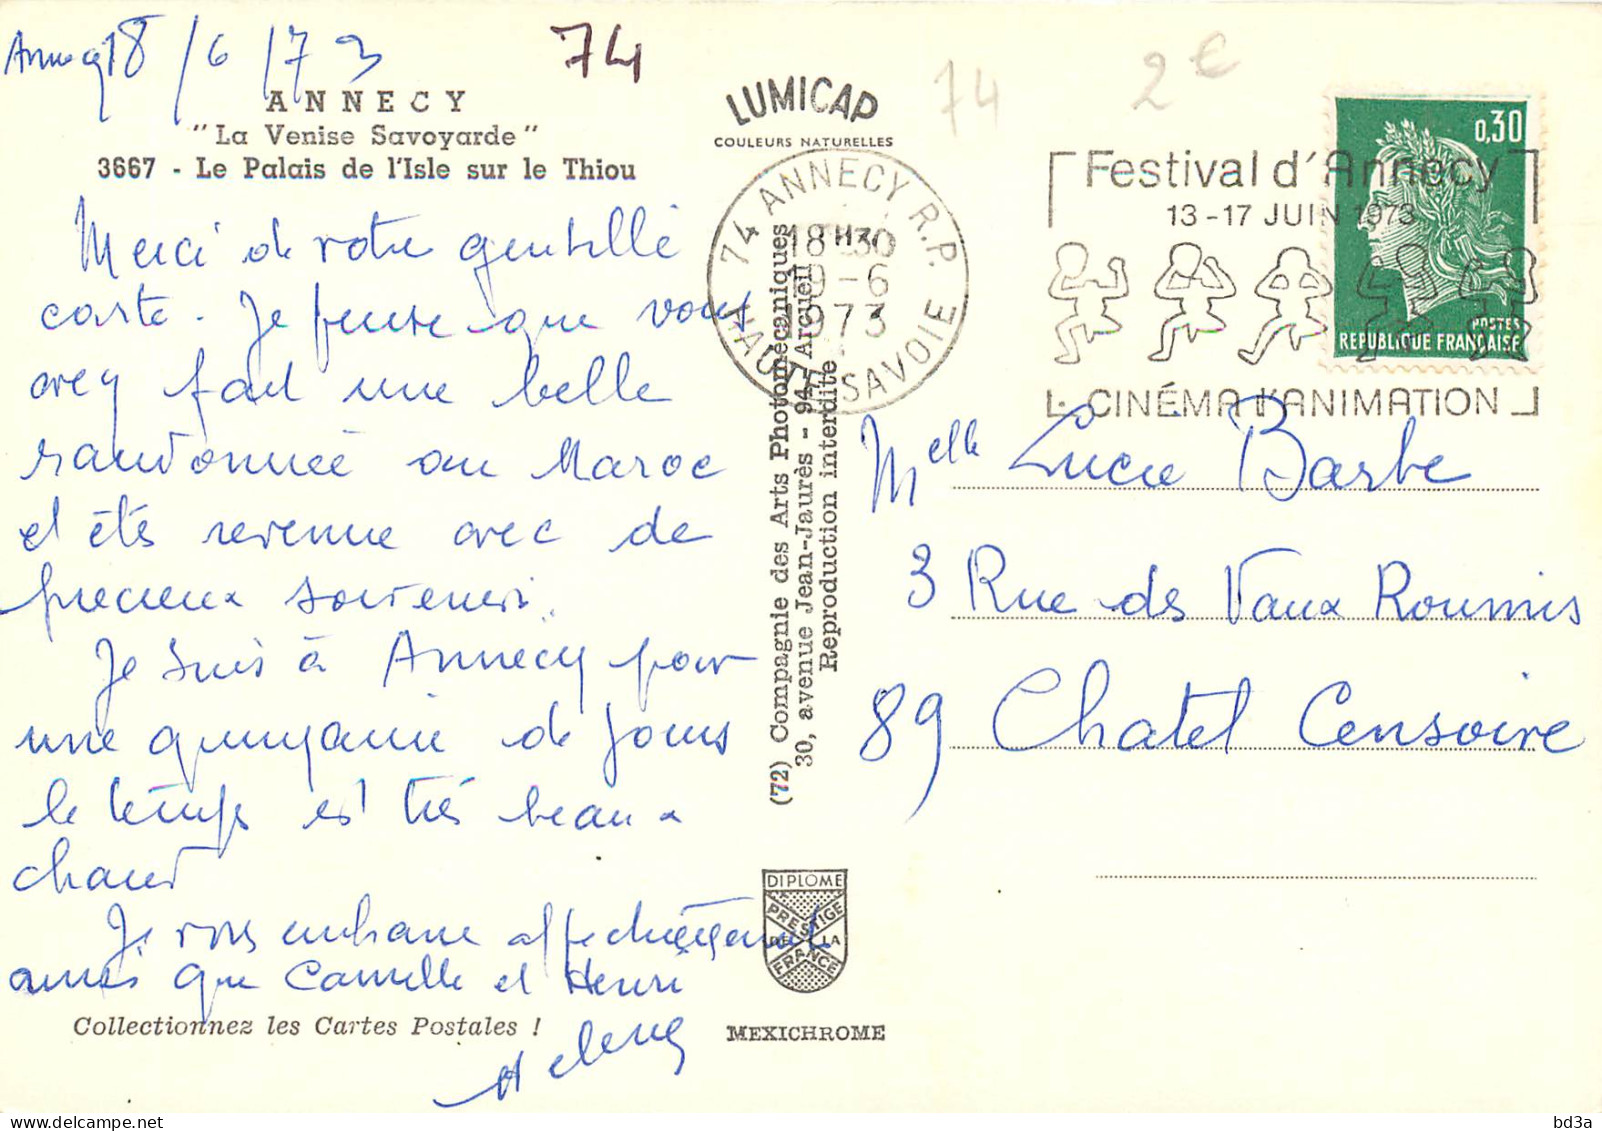 Annecy 18/6/73
74
74
2€
ANNECY
"La Venise Savoyarde"
3667 - Le Palais de l'Isle sur le Thiou
LUMICAP
COULEURS NATURELLES
Merci de votre gentille
carte. Je pense que vous
avez fait une belle
randonnée au Maroc
et êtes revenue avec de
precieux souvenirs.
Je suis à Annecy pour
une quinzaine de jours
le temps est très beau
chaud
Je vous embrasse affectueusement
ainsi que Camille et Henri
Collectionnez les Cartes Postales !
(72) Compagnie des Arts Photomécaniques
30, avenue Jean-Jaurès - 94 Arcueil
Reproduction interdite
DIPLOME
PRESTIGE
DE LA
FRANCE
MEXICHROME
74 ANNECY R.P.
18H30
19-6
1973
HAUTE-SAVOIE
Festival d'Annecy
13-17 JUIN 1973
CINÉMA D'ANIMATION
0,30
POSTES
REPUBLIQUE FRANÇAISE
Melle Lucie Barbe
3 Rue des Vaux Roumis
89 Chatel Censoire
bd3a